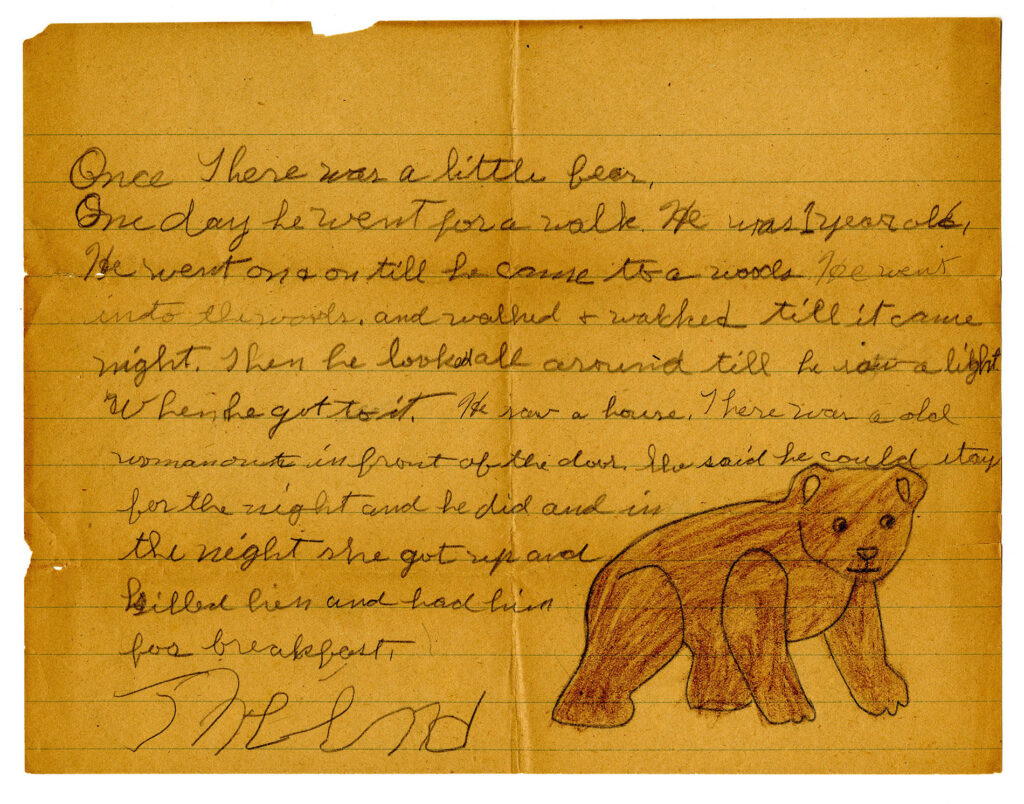 Once There was a little bear.
One day he went for a walk. He was 1 year old.
He went on & on till he came to a woods He went
into the woods. and walked & walked till it came
night. Then he looked all around till he saw a light
When he got to it. He saw a house. There was a old
woman out in front of the door. She said he could stay
for the night and he did and in
the night she got up and
killed him and had him
for breakfast.
The End